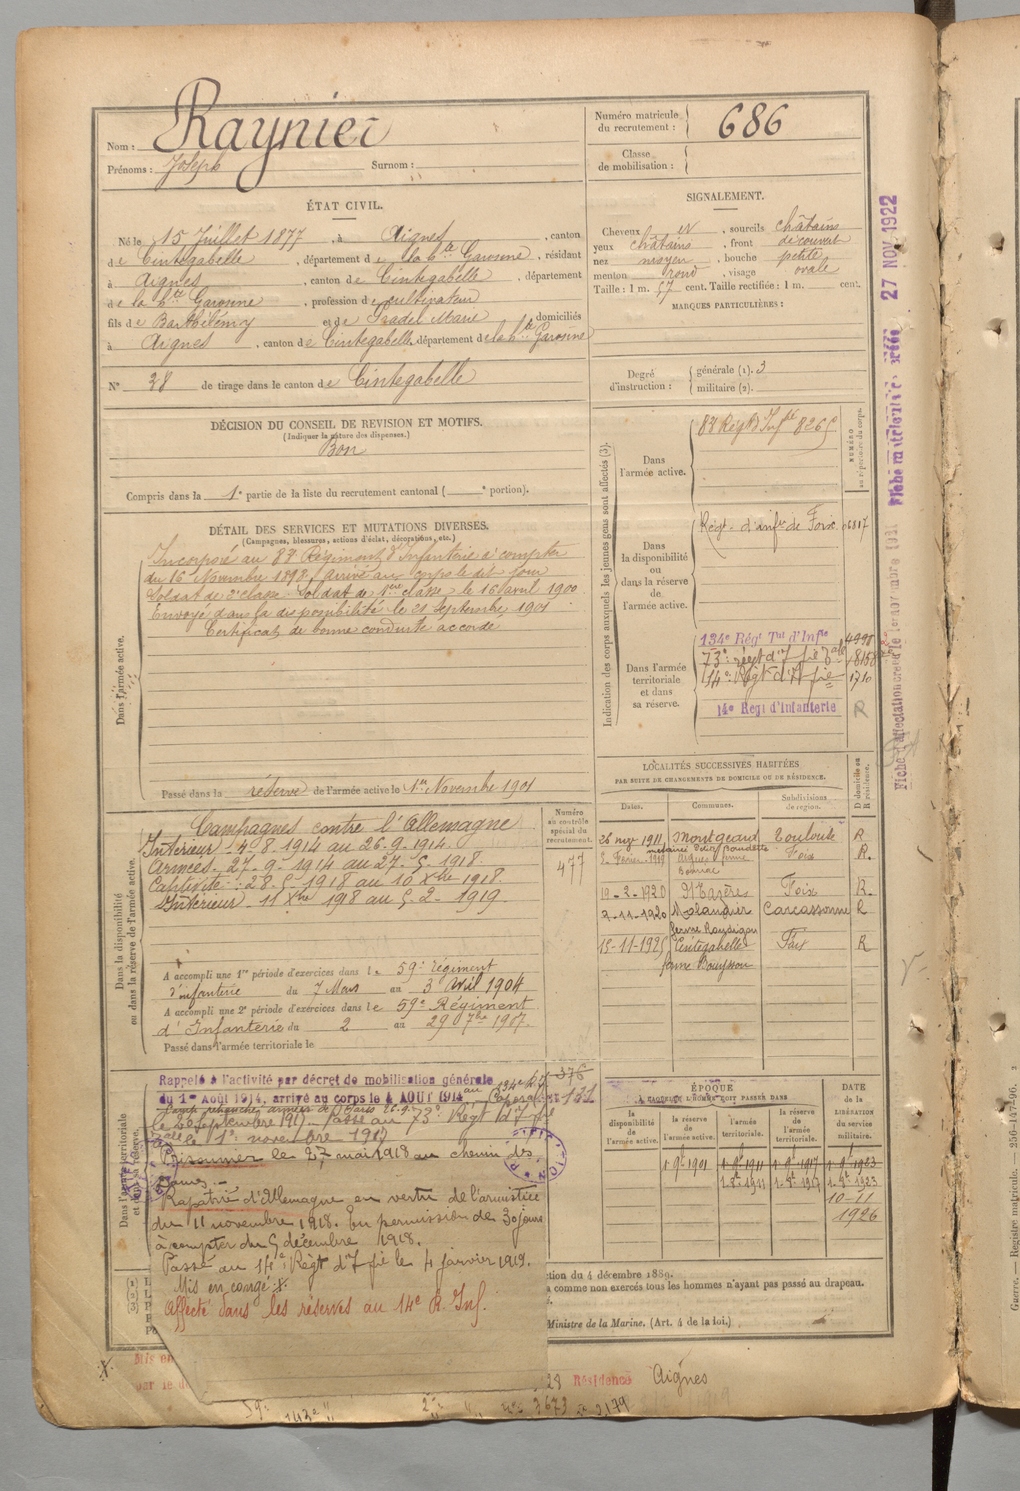 Nom : Raynier
Prénoms : Joseph Surnom :
Numéro matricule du recrutement : 686
Classe de mobilisation :
ÉTAT CIVIL.
Né le 15 Juillet 1877, à Aignes, canton
de Cintegabelle, département de la hte Garonne, résidant
à Aignes, canton de Cintegabelle, département
de la hte Garonne, profession de cultivateur
fils de Barthélémy et de Pradel Marie domiciliés
à Aignes, canton de Cintegabelle, département de la hte Garonne
N° 38 de tirage dans le canton de Cintegabelle
SIGNALEMENT.
Cheveux et, sourcils châtains
yeux châtains, front découvert
nez moyen, bouche petite
menton rond, visage ovale
Taille : 1 m. 57 cent. Taille rectifiée : 1 m. cent.
MARQUES PARTICULIÈRES :
Degré d'instruction : générale (1). 3
militaire (2).
DÉCISION DU CONSEIL DE REVISION ET MOTIFS.
(Indiquer la nature des dispenses.)
Bon
Compris dans la 1e partie de la liste du recrutement cantonal ( e portion).
DÉTAIL DES SERVICES ET MUTATIONS DIVERSES.
(Campagnes, blessures, actions d'éclat, décorations, etc.)
Dans l'armée active.
Incorporé au 83e Régiment d'Infanterie à compter
du 16 Novembre 1898. Arrivé au corps le dit jour
Soldat de 2e classe. Soldat de 1ère classe le 16 avril 1900
Envoyé dans la disponibilité le 21 Septembre 1901
Certificat de bonne conduite accordé
Passé dans la réserve de l'armée active le 1er Novembre 1901
Indication des corps auxquels les jeunes gens sont affectés (3).
NUMÉRO au répertoire du corps.
Dans l'armée active.
83 Régt d'Infie
Dans la disponibilité ou dans la réserve de l'armée active.
Régt. d'infie de Foix
Dans l'armée territoriale et dans sa réserve.
134e Régt Tal d'Infie 4998
73e régt d'Ifie 8158
14e Régt d'Ifie 1710
14e Régt d'Infanterie R
Fiche matricule créée 27 NOV 1922
LOCALITÉS SUCCESSIVES HABITÉES
PAR SUITE DE CHANGEMENTS DE DOMICILE OU DE RÉSIDENCE.
Dates. Communes. Subdivisions de région. D domicile ou R résidence.
26 nov 1911 Montgeard Toulouse R
2 Février 1919 Aignes ferme Foix R.
10-2-1920 Mazères Foix R.
2-11-1920 Molandier Carcassonne R
ferme
15-11-1925 Cintegabelle Foix R
ferme Bouysson
Numéro au contrôle spécial du recrutement.
477
Dans la disponibilité ou dans la réserve de l'armée active.
Campagnes contre l'Allemagne
Intérieur 4.8.1914 au 26.9.1914.
Armées. 27.9.1914 au 27.5.1918.
Captivité : 28.5.1918 au 10 Xbre 1918.
Intérieur. 11 Xbre 1918 au 5.2.1919.
A accompli une 1re période d'exercices dans le 59e régiment
d'infanterie du 7 Mars au 3 Avril 1904
A accompli une 2e période d'exercices dans le 59e Régiment
d'Infanterie du 2 au 29 7bre 1907.
Passé dans l'armée territoriale le
Dans l'armée territoriale et dans sa réserve.
Rappelé à l'activité par décret de mobilisation générale
du 1er Août 1914, arrivé au corps le 4 AOUT 1914 au 134e
Passé au 73e Régt d'Ifie
le 1er novembre 1917
Prisonnier le 27 mai 1918 au chemin des
Dames.
Rapatrié d'Allemagne en vertu de l'armistice
du 11 novembre 1918. En permission de 30 jours
à compter du 5 décembre 1918.
Passé au 14e Régt d'Ifie le 4 janvier 1919.
Mis en congé
Affecté dans les réserves au 14e R. Inf.
376
131
ÉPOQUE
À LAQUELLE L'HOMME DOIT PASSER DANS
la disponibilité de l'armée active. la réserve de l'armée active. l'armée territoriale. la réserve de l'armée territoriale. DATE DE LA LIBÉRATION DU SERVICE MILITAIRE.
1-9e 1901 1-9e 1911 1-9e 1917 1-9e 1923
10-11
1926
ction du 4 décembre 1889.
a comme non exercés tous les hommes n'ayant pas passé au drapeau.
Ministre de la Marine. (Art. 4 de la loi.)
Mis en
par le d
28 Résidence Aignes
59e
143e "
3673
3179
Guerre. — Registre matricule. — 256-147-96.